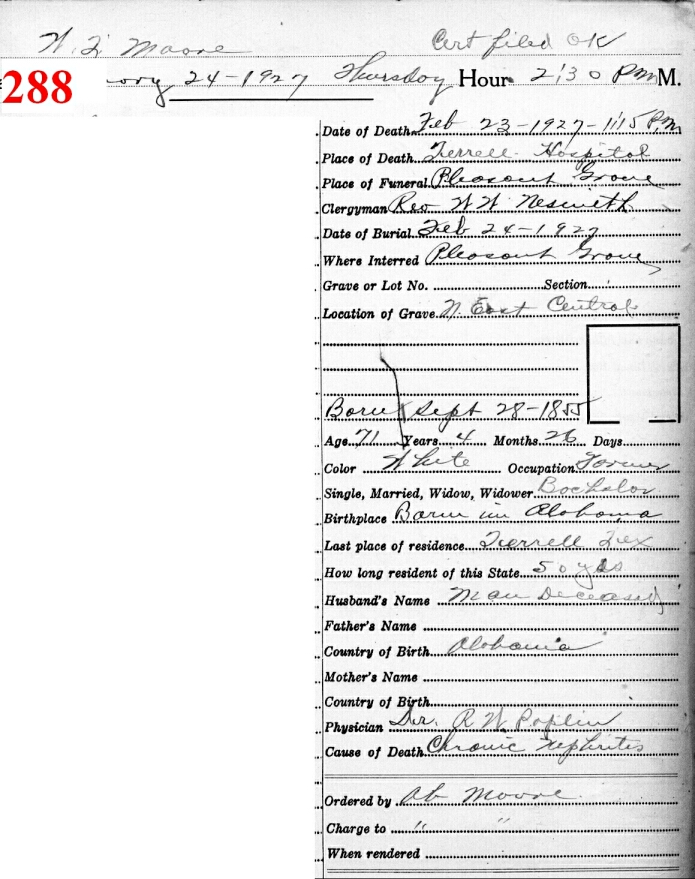 W. L. Moore Cert filed OK
288 24-1927 Thursday Hour 2:30 PM M.
Date of Death Feb 23-1927-1:15 P.M
Place of Death Terrell Hospital
Place of Funeral Pleasant Grove
Clergyman Rev W W Nesmith
Date of Burial Feb 24-1927
Where Interred Pleasant Grove
Grave or Lot No. Section
Location of Grave N. East Central
Born Sept 28-1855
Age 71 Years 4 Months 26 Days
Color White Occupation Farmer
Single, Married, Widow, Widower Bachelor
Birthplace Born in Alabama
Last place of residence Terrell Tex
How long resident of this State 50 yrs
Husband's Name Man Deceased
Father's Name
Country of Birth Alabama
Mother's Name
Country of Birth
Physician Dr. R W Poplin
Cause of Death Chronic nephrites
Ordered by Ab Moore
Charge to " "
When rendered